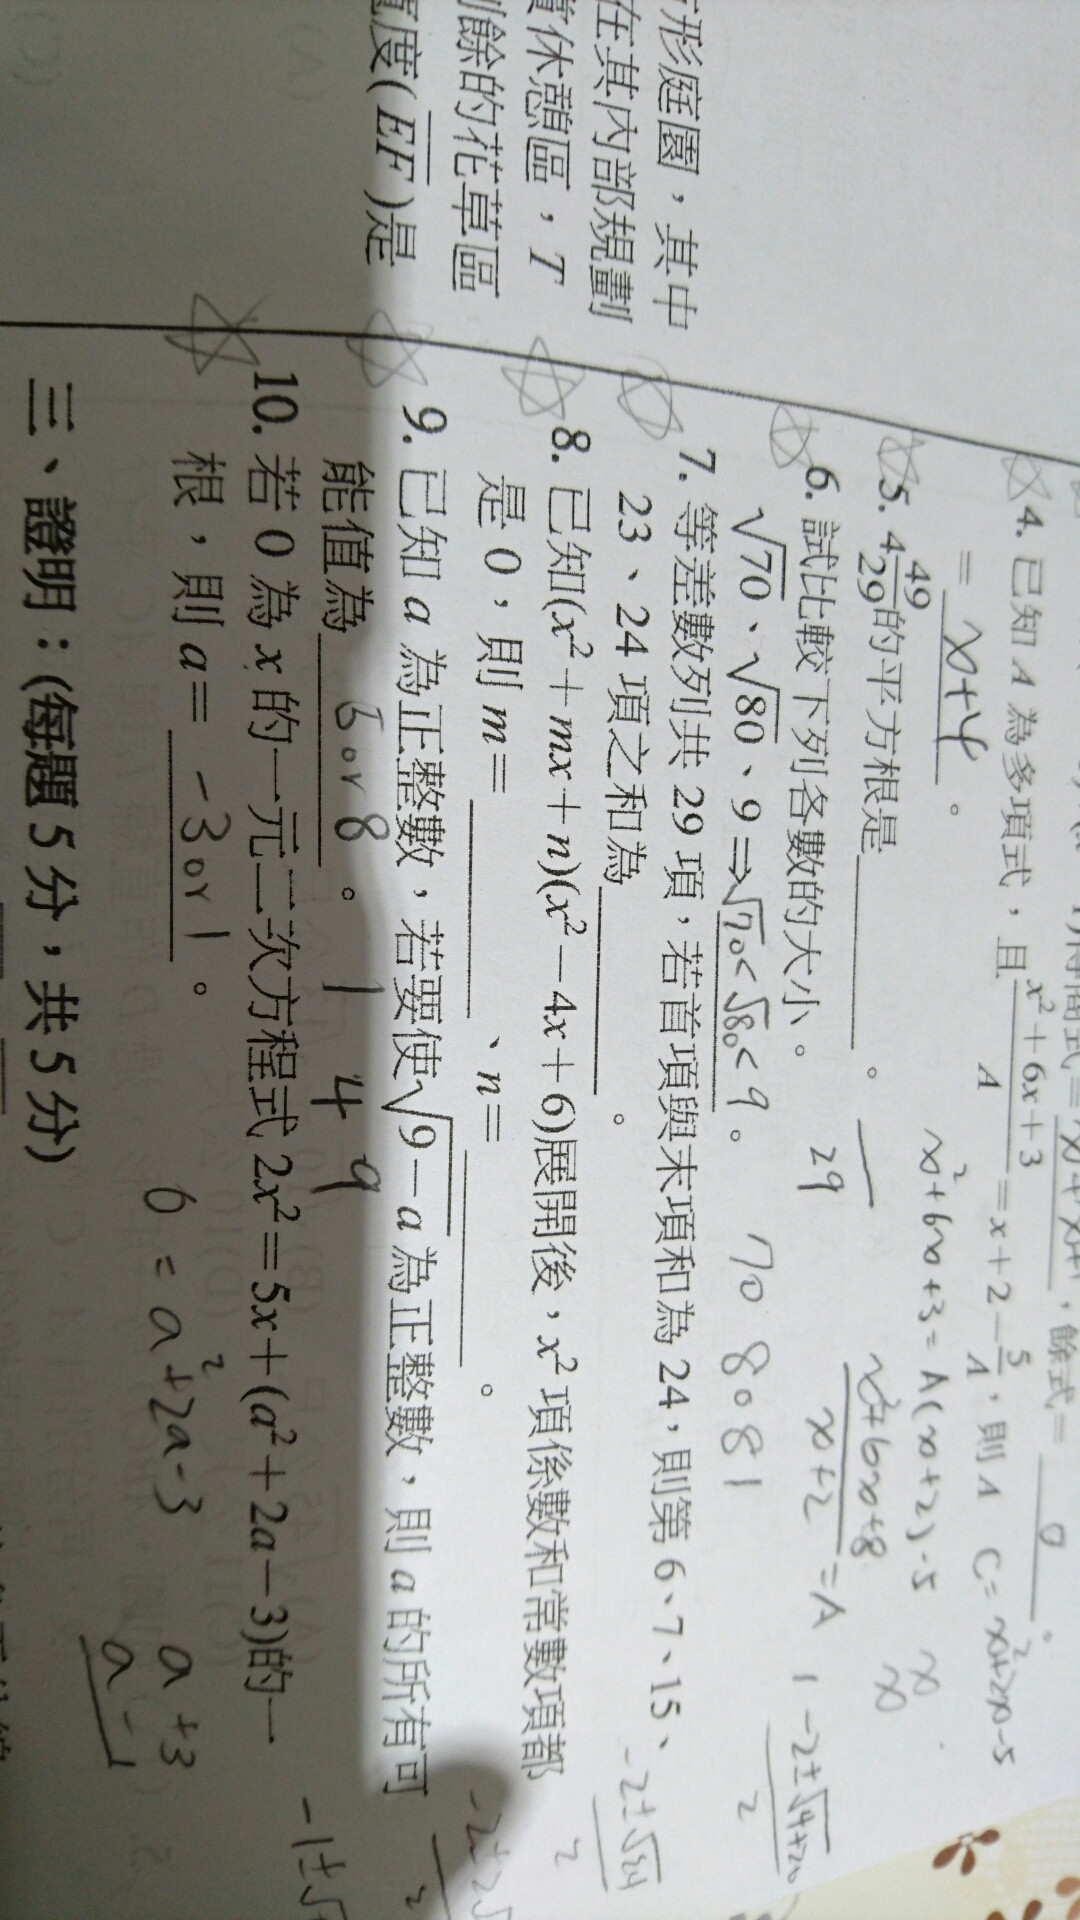 形庭園，其中
在其內部規劃
休憩區，T
餘的花草區
度(EF)是
4. 已知 A 為多項式，且 (x²+6x+3)/A = x+2−5/A，則 A
= x+4 。
x²+6x+3=A(x+2)-5
x²+6x+8
x+2 =A
5. 4 49/29 的平方根是 。
29
6. 試比較下列各數的大小。
√70、√80、9⇒ √70<√80<9 。
70 80 81
7. 等差數列共 29 項，若首項與末項和為 24，則第 6、7、15、
23、24 項之和為 。
8. 已知(x²+mx+n)(x²−4x+6)展開後，x² 項係數和常數項都
是 0，則 m= 、n= 。
9. 已知 a 為正整數，若要使√9−a 為正整數，則 a 的所有可
能值為 5 or 8 。
1 4 9
10. 若 0 為 x 的一元二次方程式 2x²=5x+(a²+2a−3)的一
根，則 a= -3 or 1 。
0 = a²+2a-3
a +3
a -1
三、證明：(每題 5 分，共 5 分)